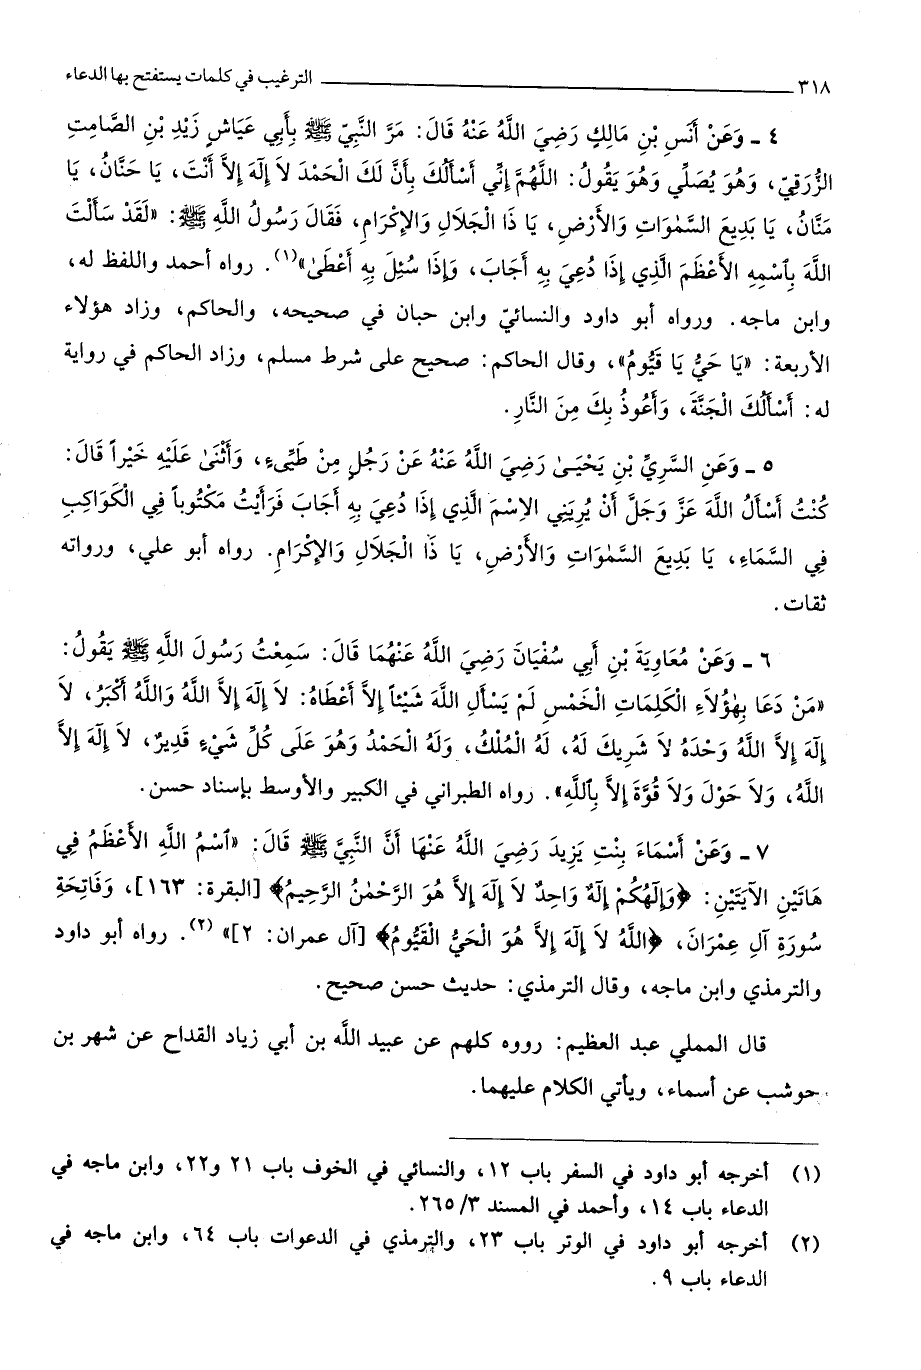 ٣١٨ ــــــــــــ الترغيب في كلمات يستفتح بها الدعاء
٤ ـ وَعَنْ أَنَسِ بْنِ مَالِكٍ رَضِيَ اللَّهُ عَنْهُ قَالَ: مَرَّ النَّبِيّ ﷺ بِأَبِي عَيَاشٍ زَيْدِ بْنِ الصَّامِتِ
الزُّرَقِيّ، وَهُوَ يُصَلِّي وَهُوَ يَقُولُ: اللَّهُمَّ إِنِّي أَسْأَلُكَ بِأَنَّ لَكَ الْحَمْدَ لاَ إِلَهَ إِلاَّ أَنْتَ، يَا حَنَّانُ، يَا
مَنَّانُ، يَا بَدِيعَ السَّمٰوَاتِ وَالأَرْضِ، يَا ذَا الْجَلَالِ وَالإِكْرَامِ، فَقَالَ رَسُولُ اللَّهِ ﷺ: «لَقَدْ سَأَلْتَ
اللَّهَ بِٱسْمِهِ الأَعْظَمَ الَّذِي إِذَا دُعِيَ بِهِ أَجَابَ، وَإِذَا سُئِلَ بِهِ أَعْطَىٰ»(١). رواه أحمد واللفظ له،
وابن ماجه. ورواه أبو داود والنسائيّ وابن حبان في صحيحه، والحاكم، وزاد هؤلاء
الأربعة: «يَا حَيُّ يَا قَيُّومُ»، وقال الحاكم: صحيح على شرط مسلم، وزاد الحاكم في رواية
له: أَسْأَلُكَ الْجَنَّةَ، وَأَعُوذُ بِكَ مِنَ النَّارِ.
٥ ـ وَعَنِ السَّرِيِّ بْنِ يَحْيَىٰ رَضِيَ اللَّهُ عَنْهُ عَنْ رَجُلٍ مِنْ طَيِّىءٍ، وَأَثْنَىٰ عَلَيْهِ خَيْراً قَالَ:
كُنْتُ أَسْأَلُ اللَّهَ عَزَّ وَجَلَّ أَنْ يُرِيَنِي الاِسْمَ الَّذِي إِذَا دُعِيَ بِهِ أَجَابَ فَرَأَيْتُ مَكْتُوباً فِي الْكَوَاكِبِ
فِي السَّمَاءِ، يَا بَدِيعَ السَّمٰوَاتِ وَالأَرْضِ، يَا ذَا الْجَلَالِ وَالإِكْرَامِ. رواه أبو علي، ورواته
ثقات.
٦ ـ وَعَنْ مُعَاوِيَةَ بْنِ أَبِي سُفْيَانَ رَضِيَ اللَّهُ عَنْهُمَا قَالَ: سَمِعْتُ رَسُولَ اللَّهِ ﷺ يَقُولُ:
«مَنْ دَعَا بِهٰؤُلاَءِ الْكَلِمَاتِ الْخَمْسِ لَمْ يَسْأَلِ اللَّهَ شَيْئاً إِلاَّ أَعْطَاهُ: لاَ إِلَهَ إِلاَّ اللَّهُ وَاللَّهُ أَكْبَرُ، لاَ
إِلَهَ إِلاَّ اللَّهُ وَحْدَهُ لاَ شَرِيكَ لَهُ، لَهُ الْمُلْكُ، وَلَهُ الْحَمْدُ وَهُوَ عَلَى كُلِّ شَيْءٍ قَدِيرٌ، لاَ إِلَهَ إِلاَّ
اللَّهُ، وَلاَ حَوْلَ وَلاَ قُوَّةَ إِلاَّ بِٱللَّهِ». رواه الطبراني في الكبير والأوسط بإسناد حسن.
٧ ـ وَعَنْ أَسْمَاءَ بِنْتِ يَزِيدَ رَضِيَ اللَّهُ عَنْهَا أَنَّ النَّبِيَّ ﷺ قَالَ: «ٱسْمُ اللَّهِ الأَعْظَمُ فِي
هَاتَيْنِ الآيَتَيْنِ: ﴿وَإِلَهُكُمْ إِلَهٌ وَاحِدٌ لاَ إِلَهَ إِلاَّ هُوَ الرَّحْمٰنُ الرَّحِيمُ﴾ [البقرة: ١٦٣]، وَفَاتِحَةِ
سُورَةِ آلِ عِمْرَانَ، ﴿اللَّهُ لاَ إِلَهَ إِلاَّ هُوَ الْحَيُّ الْقَيُّومُ﴾ [آل عمران: ٢]» (٢). رواه أبو داود
والترمذي وابن ماجه، وقال الترمذي: حديث حسن صحيح.
قال المملي عبد العظيم: رووه كلهم عن عبيد اللَّه بن أبي زياد القداح عن شهر بن
حوشب عن أسماء، ويأتي الكلام عليهما.
(١) أخرجه أبو داود في السفر باب ١٢، والنسائي في الخوف باب ٢١ و٢٢، وابن ماجه في
الدعاء باب ١٤، وأحمد في المسند ٢٦٥/٣.
(٢) أخرجه أبو داود في الوتر باب ٢٣، والترمذي في الدعوات باب ٦٤، وابن ماجه في
الدعاء باب ٩.